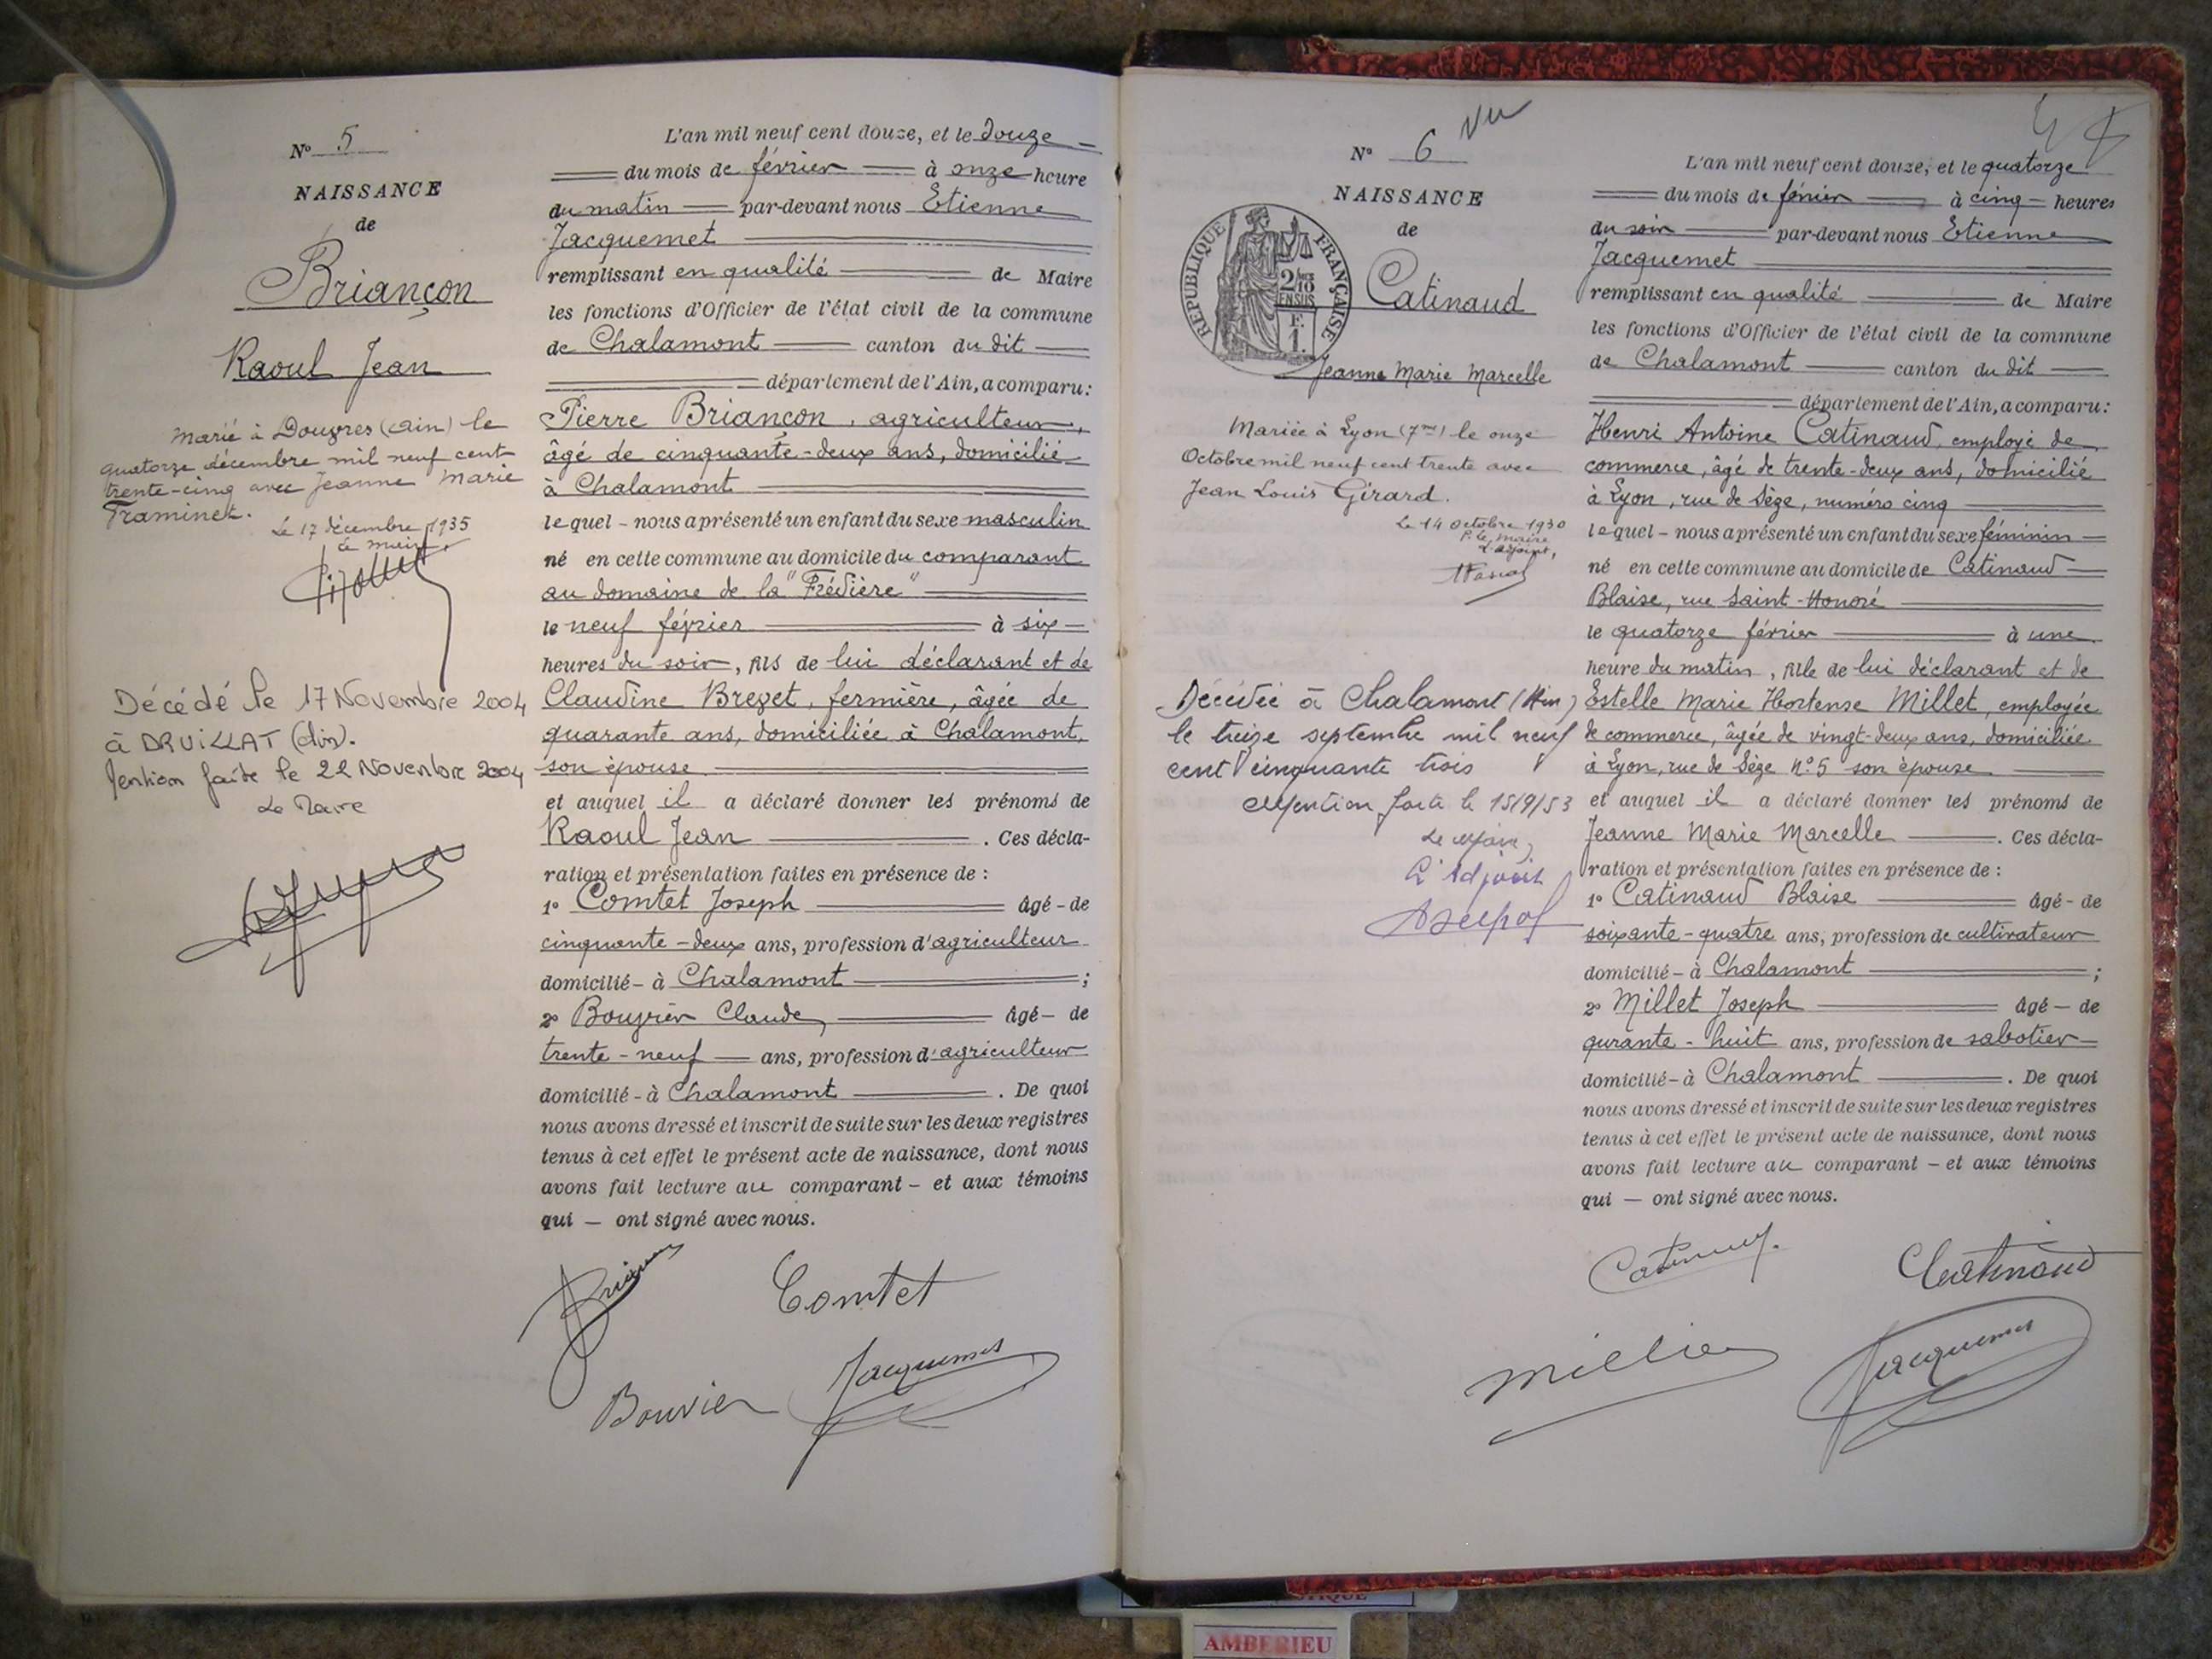 N° 5
NAISSANCE
de
Briançon
Raoul Jean
Marié à Douvres (Ain) le
quatorze décembre mil neuf cent
trente-cinq avec Jeanne Marie
Traminet.
Le 17 décembre 1935
Le maire
Décédé le 17 Novembre 2004
à DRUILLAT (Ain).
Mention faite le 22 Novembre 2004
Le Maire
L'an mil neuf cent douze, et le douze
du mois de février à onze heure
du matin par-devant nous Etienne
Jacquemet
remplissant en qualité de Maire
les fonctions d'Officier de l'état civil de la commune
de Chalamont canton du dit
département de l'Ain, a comparu :
Pierre Briançon, agriculteur,
âgé de cinquante-deux ans, domicilié
à Chalamont
lequel - nous a présenté un enfant du sexe masculin
né en cette commune au domicile du comparant
au domaine de la "Frédière"
le neuf février à six
heures du soir, fils de lui déclarant et de
Claudine Brevet, fermière, âgée de
quarante ans, domiciliée à Chalamont,
son épouse
et auquel il a déclaré donner les prénoms de
Raoul Jean . Ces décla-
ration et présentation faites en présence de :
1° Comtet Joseph âgé - de
cinquante-deux ans, profession d'agriculteur
domicilié - à Chalamont ;
2° Bouvier Claude, âgé - de
trente-neuf ans, profession d'agriculteur
domicilié - à Chalamont . De quoi
nous avons dressé et inscrit de suite sur les deux registres
tenus à cet effet le présent acte de naissance, dont nous
avons fait lecture au comparant - et aux témoins
qui - ont signé avec nous.
Comtet
Bouvier Jacquemet
N° 6 Vu
NAISSANCE
de
REPUBLIQUE FRANÇAISE
2/10
EN SUS
F.
1.
Catinaud
Jeanne Marie Marcelle
Mariée à Lyon (7me) le onze
Octobre mil neuf cent trente avec
Jean Louis Girard.
Le 14 octobre 1930
P. le maire
L'adjoint,
Décédée à Chalamont (Ain)
le treize septembre mil neuf
cent cinquante trois
Mention faite le 15/9/53
Le Maire,
L'Adjoint
L'an mil neuf cent douze, et le quatorze
du mois de février à cinq heures
du soir par-devant nous Etienne
Jacquemet
remplissant en qualité de Maire
les fonctions d'Officier de l'état civil de la commune
de Chalamont canton du dit
département de l'Ain, a comparu :
Henri Antoine Catinaud, employé de
commerce, âgé de trente-deux ans, domicilié
à Lyon, rue de Sèze, numéro cinq
lequel - nous a présenté un enfant du sexe féminin
né en cette commune au domicile de Catinaud
Blaise, rue Saint-Honoré
le quatorze février à une
heure du matin, fille de lui déclarant et de
Estelle Marie Hortense Millet, employée
de commerce, âgée de vingt-deux ans, domiciliée
à Lyon, rue de Sèze N°5 son épouse
et auquel il a déclaré donner les prénoms de
Jeanne Marie Marcelle . Ces décla-
ration et présentation faites en présence de :
1° Catinaud Blaise âgé - de
soixante-quatre ans, profession de cultivateur
domicilié - à Chalamont ;
2° Millet Joseph âgé - de
qurante-huit ans, profession de sabotier
domicilié - à Chalamont . De quoi
nous avons dressé et inscrit de suite sur les deux registres
tenus à cet effet le présent acte de naissance, dont nous
avons fait lecture au comparant - et aux témoins
qui - ont signé avec nous.
Catinaud
Jacquemet
AMBERIEU